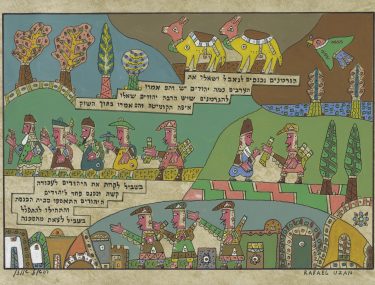 הגרמנים נכנסים לנאבל ושאלו את
הערבים כמה יהודים יש והם אמרו
להגרמנים שיש הרבה יהודים שאלו
איפה הקומיטה והם אמרו בתוך השוק
בשביל לקחת את היהודים לעבודה
קשה ונכנס פחד ליהודים
היהודים התאספו בבית הכנסת
והתחילו להתפלל
בשביל לצאת מהסכנה
RAFAEL UZAN